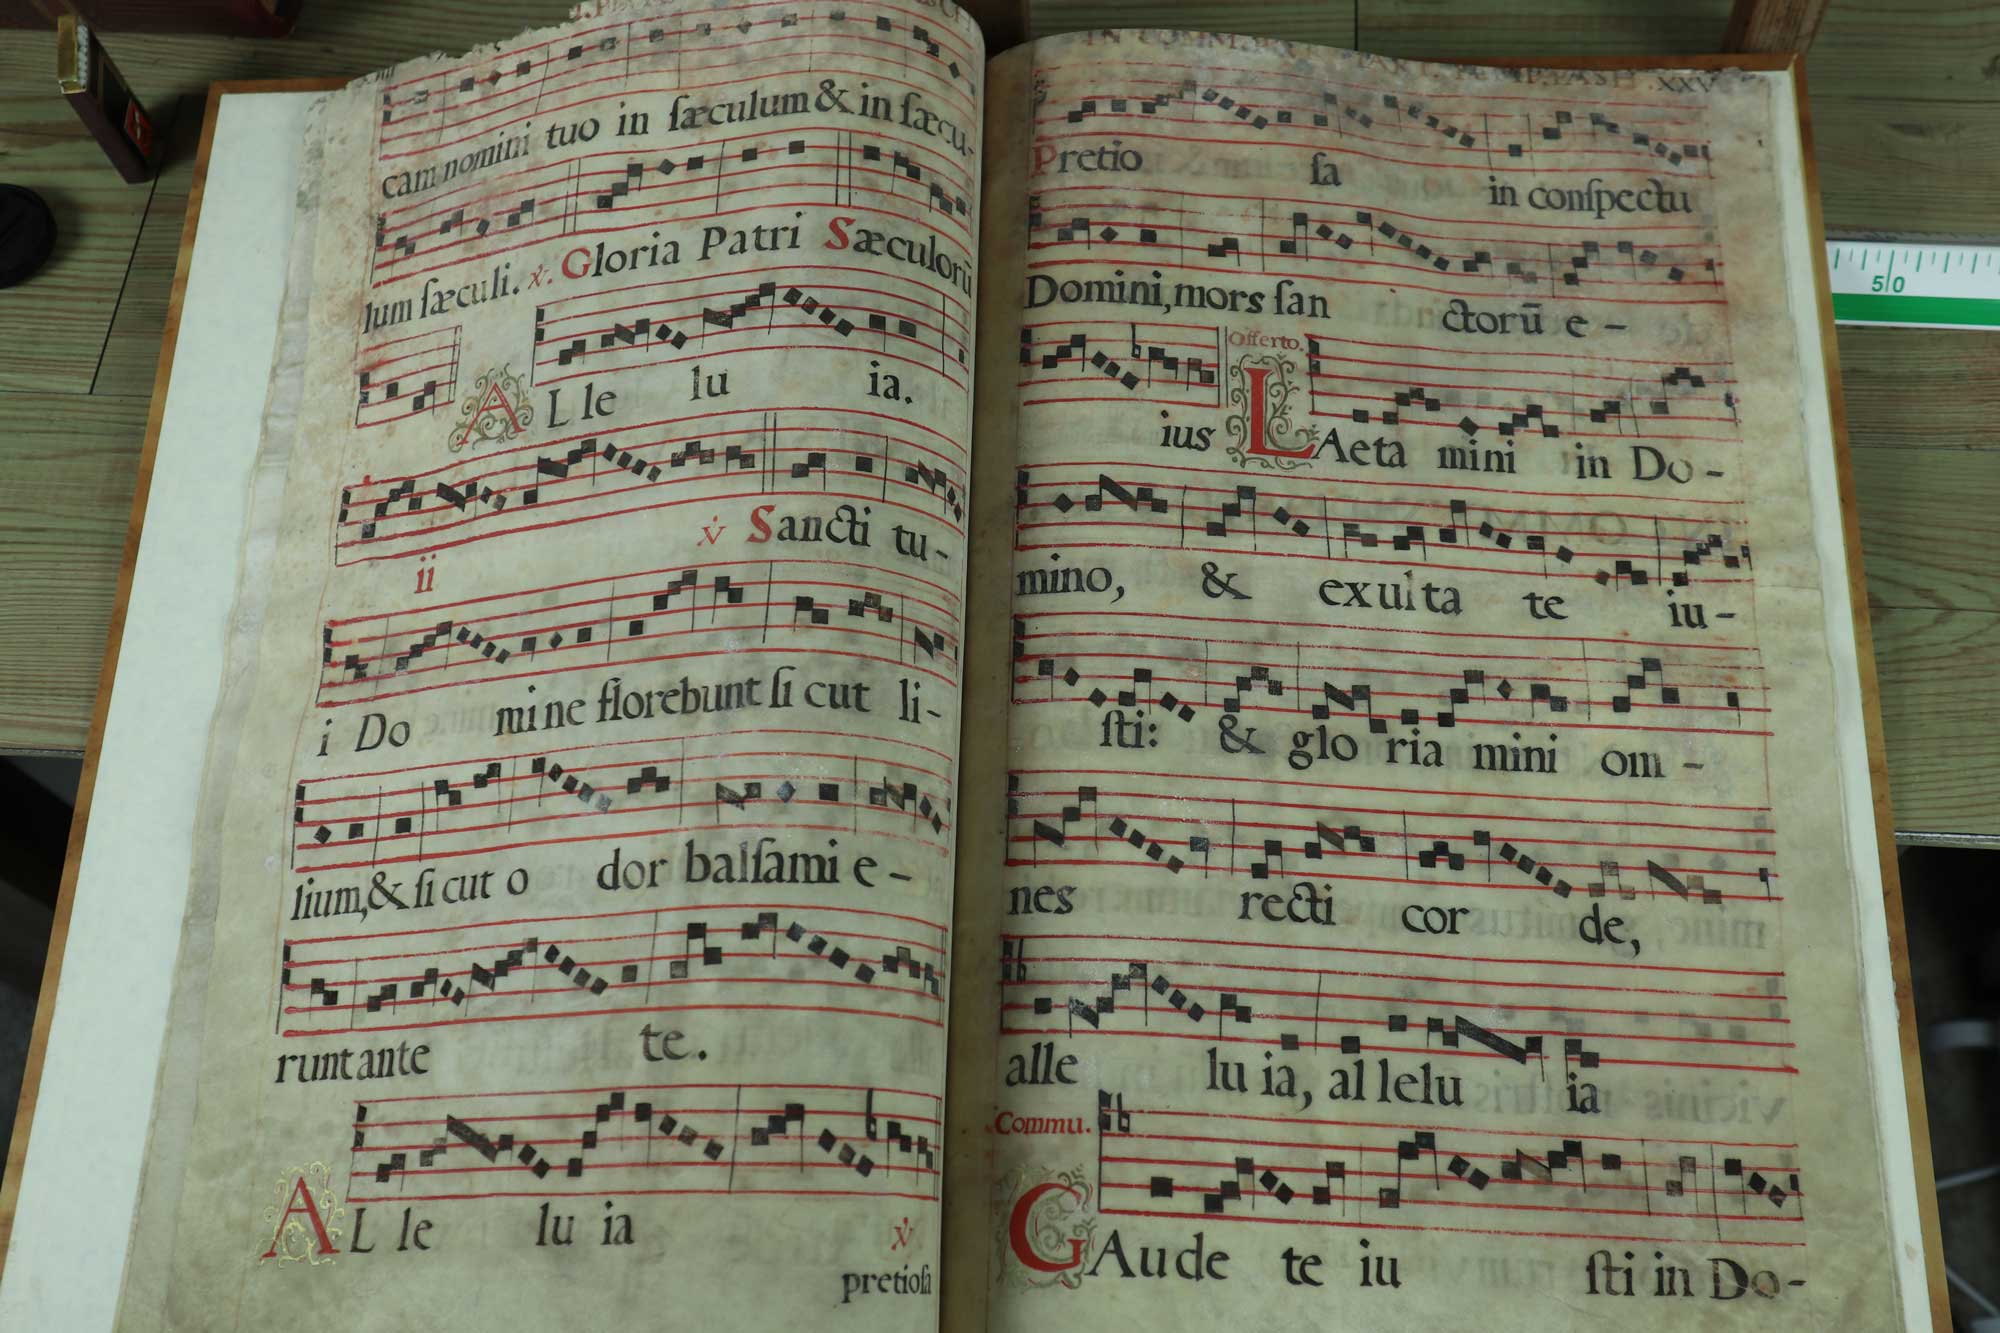 cam nomini tuo in ſæculum & in ſæcu-
lum ſæculi. ℣. Gloria Patri Sæculorū
ALle lu ia.
ii ℣ Sancti tu-
i Do mine florebunt ſi cut li-
lium, & ſi cut o dor balſami e-
runt ante te.
ALle lu ia ℣
pretioſa
XXV
Pretio ſa in conſpectu
Domini, mors ſan ctorū e-
ius Offerto. LAeta mini in Do-
mino, & exulta te iu-
ſti: & glo ria mini om-
nes recti cor de,
alle lu ia, al lelu ia
Commu.
GAude te iu ſti in Do-
50